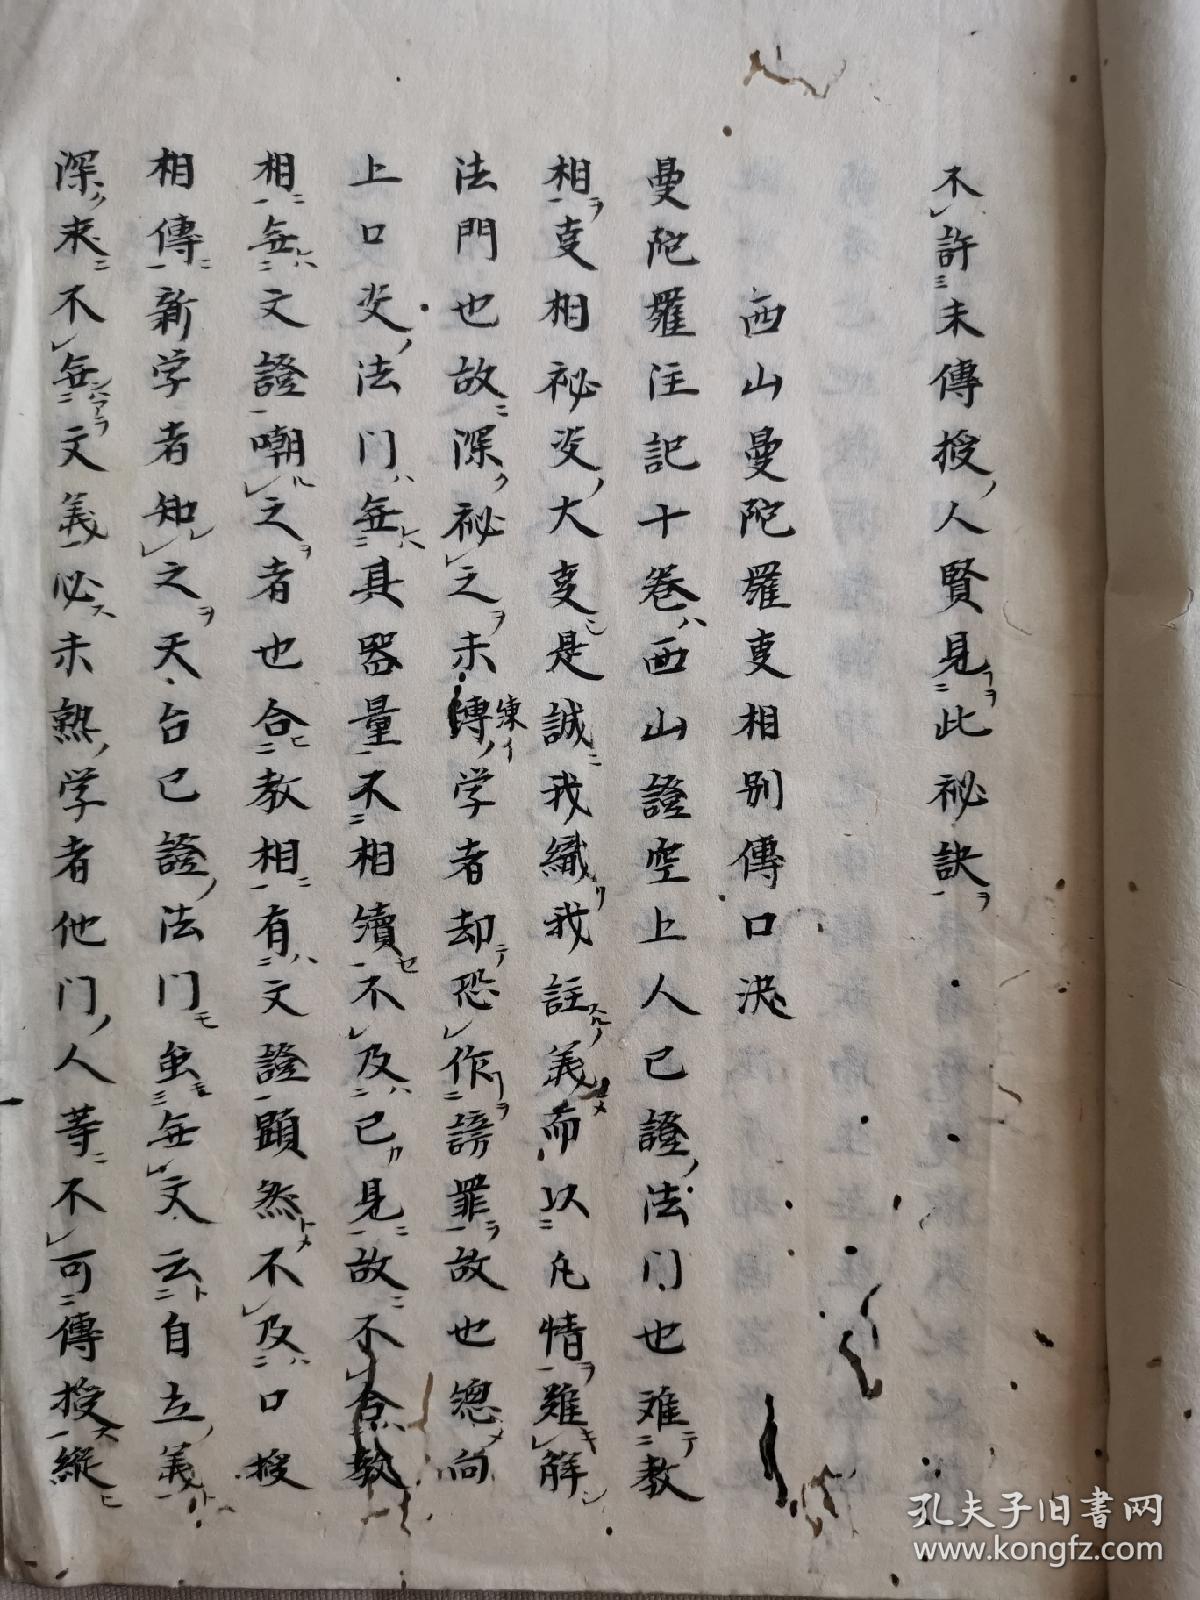 不許未傳授人賢見此祕訣
西山曼陀羅叓相別傳口决
曼陀羅注記十巻西山證空上人已證法门也难教
相叓相祕决大叓是誠我纖我註義而以凡情難解
法門也故深祕之未傳学者却恐作謗罪故也總向
練イ
上口决法门無具器量不相續不及已見故不合教
相無文證嘲之者也合教相有文證顕然不及口授
相傳新学者知之天台已證法门虽無文云自立義
深求不無文義必未熟学者他门人等不可傳授縦
孔夫子旧书网
www.kongfz.com